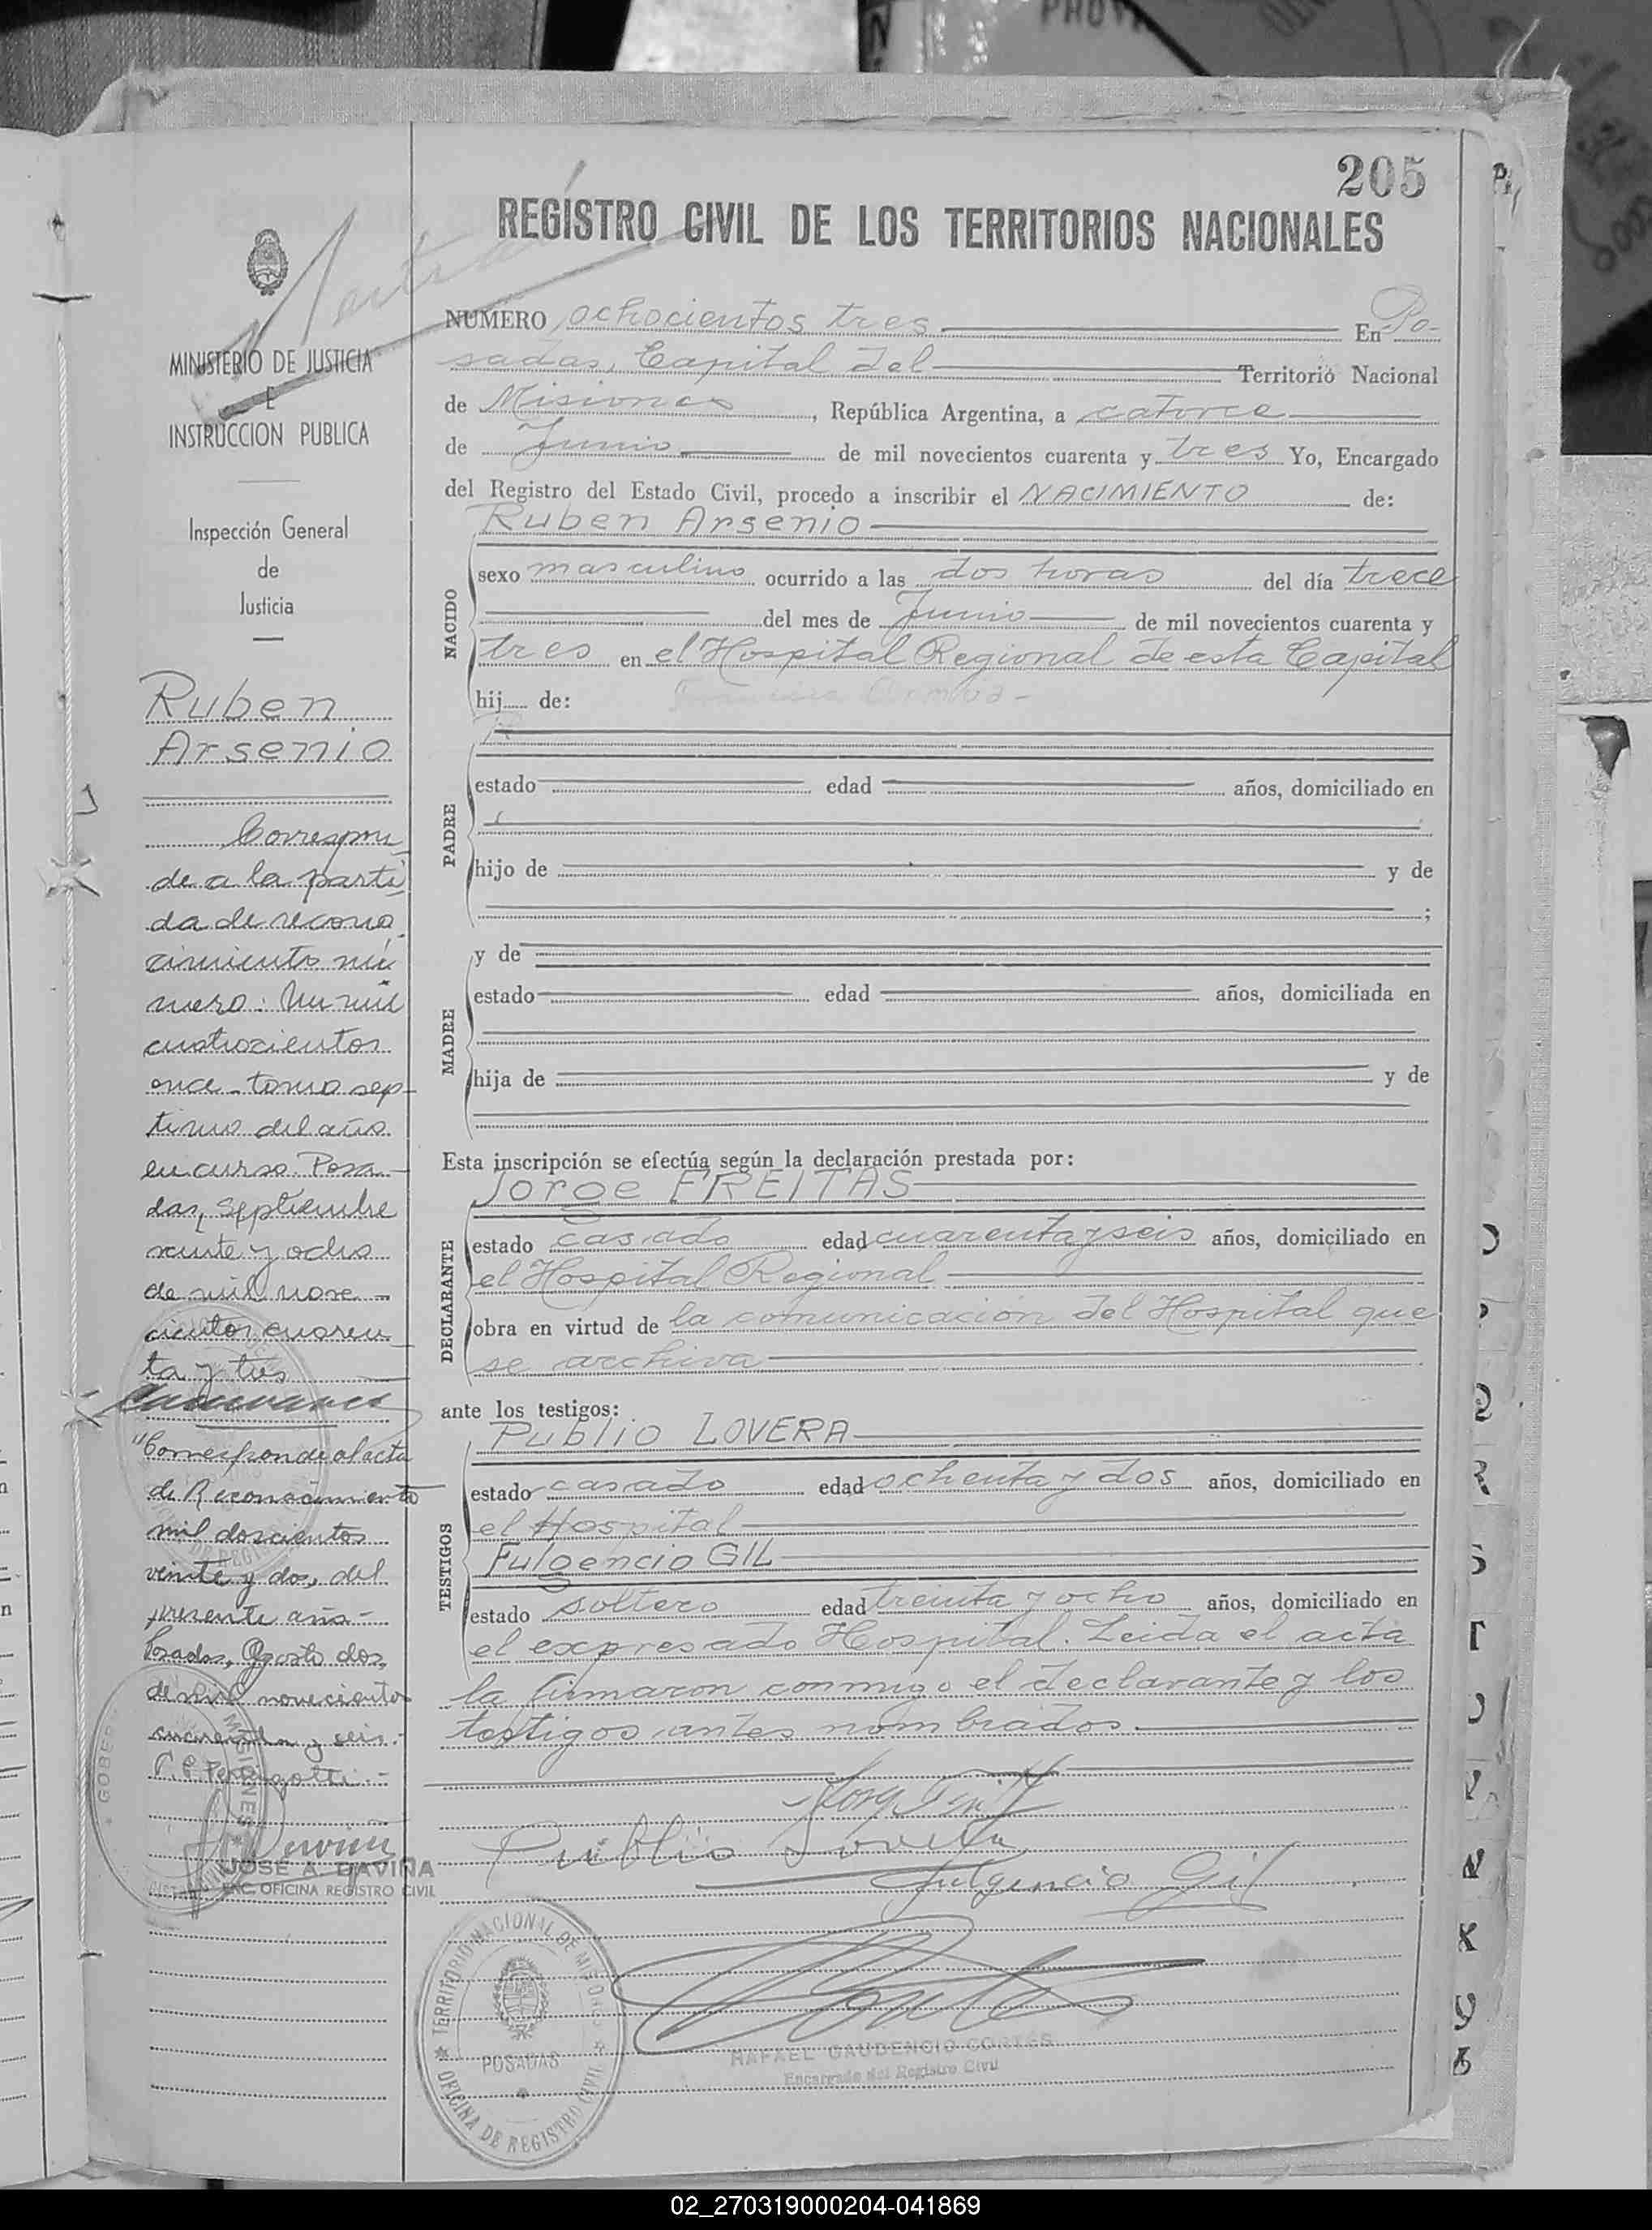 205
REGISTRO CIVIL DE LOS TERRITORIOS NACIONALES
MINISTERIO DE JUSTICIA
E
INSTRUCCION PUBLICA
Inspección General
de
Justicia
Ruben
Arsenio
Correspon-
de a la parti
da de recono
cimiento nú
mero: Un mil
cuatrocientos
once - tomo sep-
timo del año
en curso. Posa-
das, Septiembre
veinte y ocho
de mil nove-
cientos cuaren
ta y tres
"Corresponde al acta
de Reconocimiento
mil doscientos
veinte y dos, del
presente año.-
Posadas, Agosto dos,
de mil novecientos
cuarenta y seis.-
JOSE A. DAVIÑA
ENC. OFICINA REGISTRO CIVIL
NUMERO ochocientos tres En Po-
sadas, Capital del Territorio Nacional
de Misiones, República Argentina, a catorce
de Junio de mil novecientos cuarenta y tres Yo, Encargado
del Registro del Estado Civil, procedo a inscribir el NACIMIENTO de:
NACIDO
Ruben Arsenio
sexo masculino ocurrido a las dos horas del día trece
del mes de Junio de mil novecientos cuarenta y
tres en el Hospital Regional de esta Capital
hij de:
PADRE
estado edad años, domiciliado en
hijo de y de
;
MADRE
y de
estado edad años, domiciliada en
hija de y de
Esta inscripción se efectúa según la declaración prestada por:
DECLARANTE
Jorge FREITAS
estado casado edad cuarenta y seis años, domiciliado en
el Hospital Regional
obra en virtud de la comunicación del Hospital que
se archiva
ante los testigos:
TESTIGOS
Publio LOVERA
estado casado edad ochenta y dos años, domiciliado en
el Hospital
Fulgencio GIL
estado soltero edad treinta y ocho años, domiciliado en
el expresado Hospital. Leida el acta
la firmaron conmigo el declarante y los
testigos antes nombrados.
Publio Lovera
Fulgencio Gil
TERRITORIO NACIONAL DE MISIONES
POSADAS
OFICINA DE REGISTRO CIVIL
RAFAEL GAUDENCIO CORTÉS
Encargado del Registro Civil
02_270319000204-041869